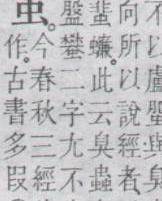 以盧蜰與臭
向所以說經者
蜚蠊。此云臭蟲
盤蠜二字尢不
虫。
今春秋三經
作古書多叚